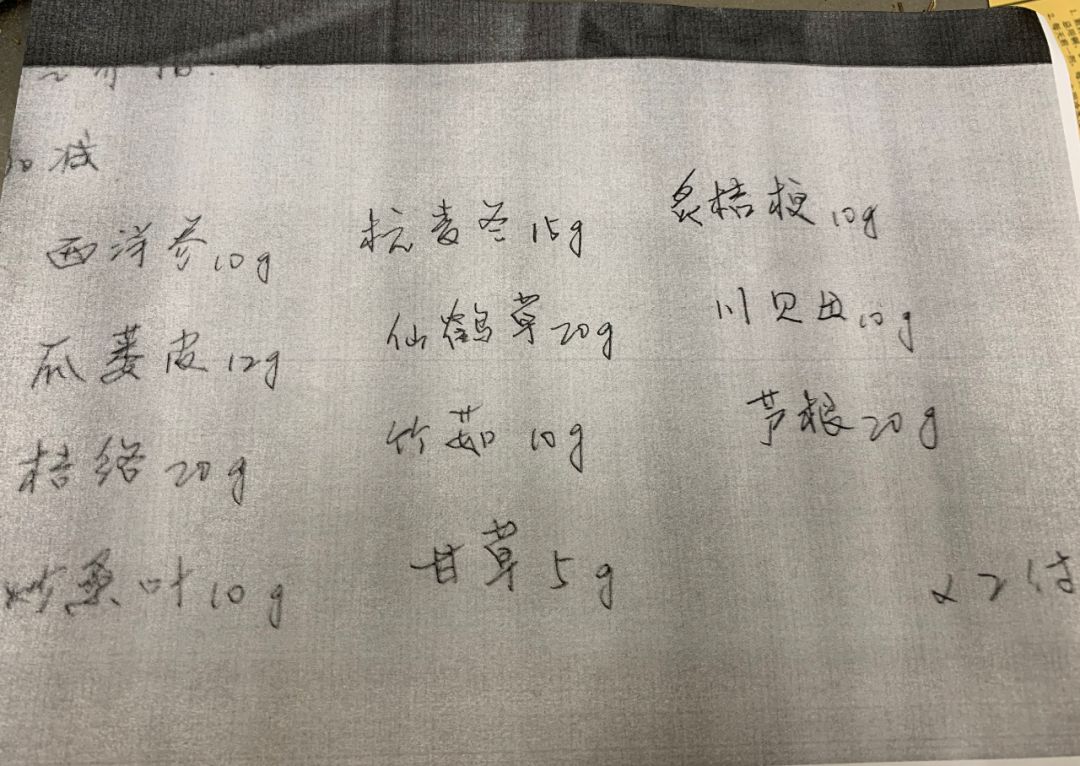 加减
西洋参10g 杭麦冬15g 炙桔梗10g
瓜蒌皮12g 仙鹤草20g 川贝母10g
桔络20g 竹茹10g 芦根20g
炒桑叶10g 甘草5g
x7付